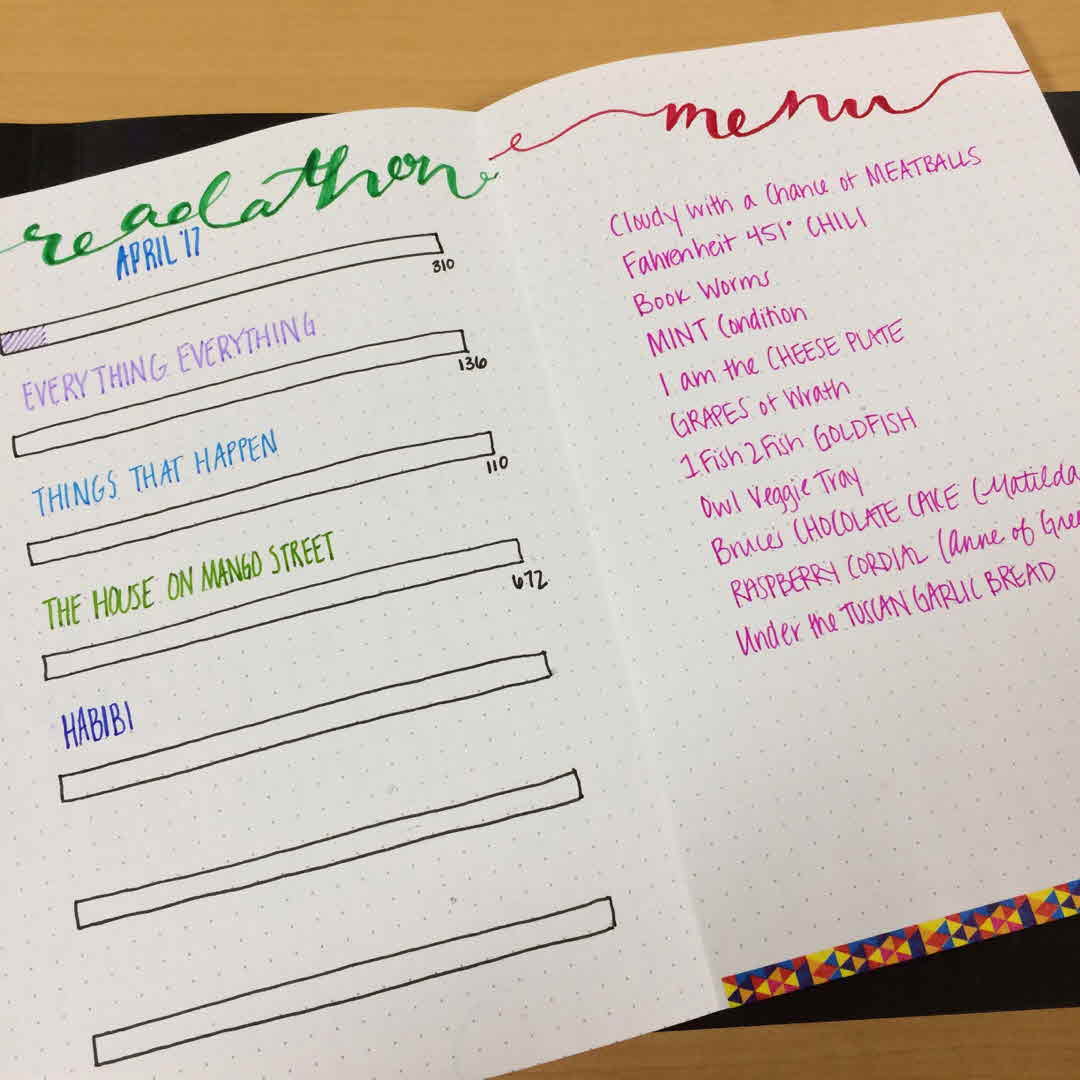 readathon
APRIL '17
310
EVERYTHING EVERYTHING
136
THINGS THAT HAPPEN
110
THE HOUSE ON MANGO STREET
672
HABIBI
menu
Cloudy with a Chance of MEATBALLS
Fahrenheit 451° CHILI
Book Worms
MINT Condition
I am the CHEESE PLATE
GRAPES of Wrath
1 Fish 2 Fish GOLDFISH
Owl Veggie Tray
Bruces CHOCOLATE CAKE (Matilda
RASPBERRY CORDIAL (Anne of Gree
Under the TUSCAN GARLIC BREAD